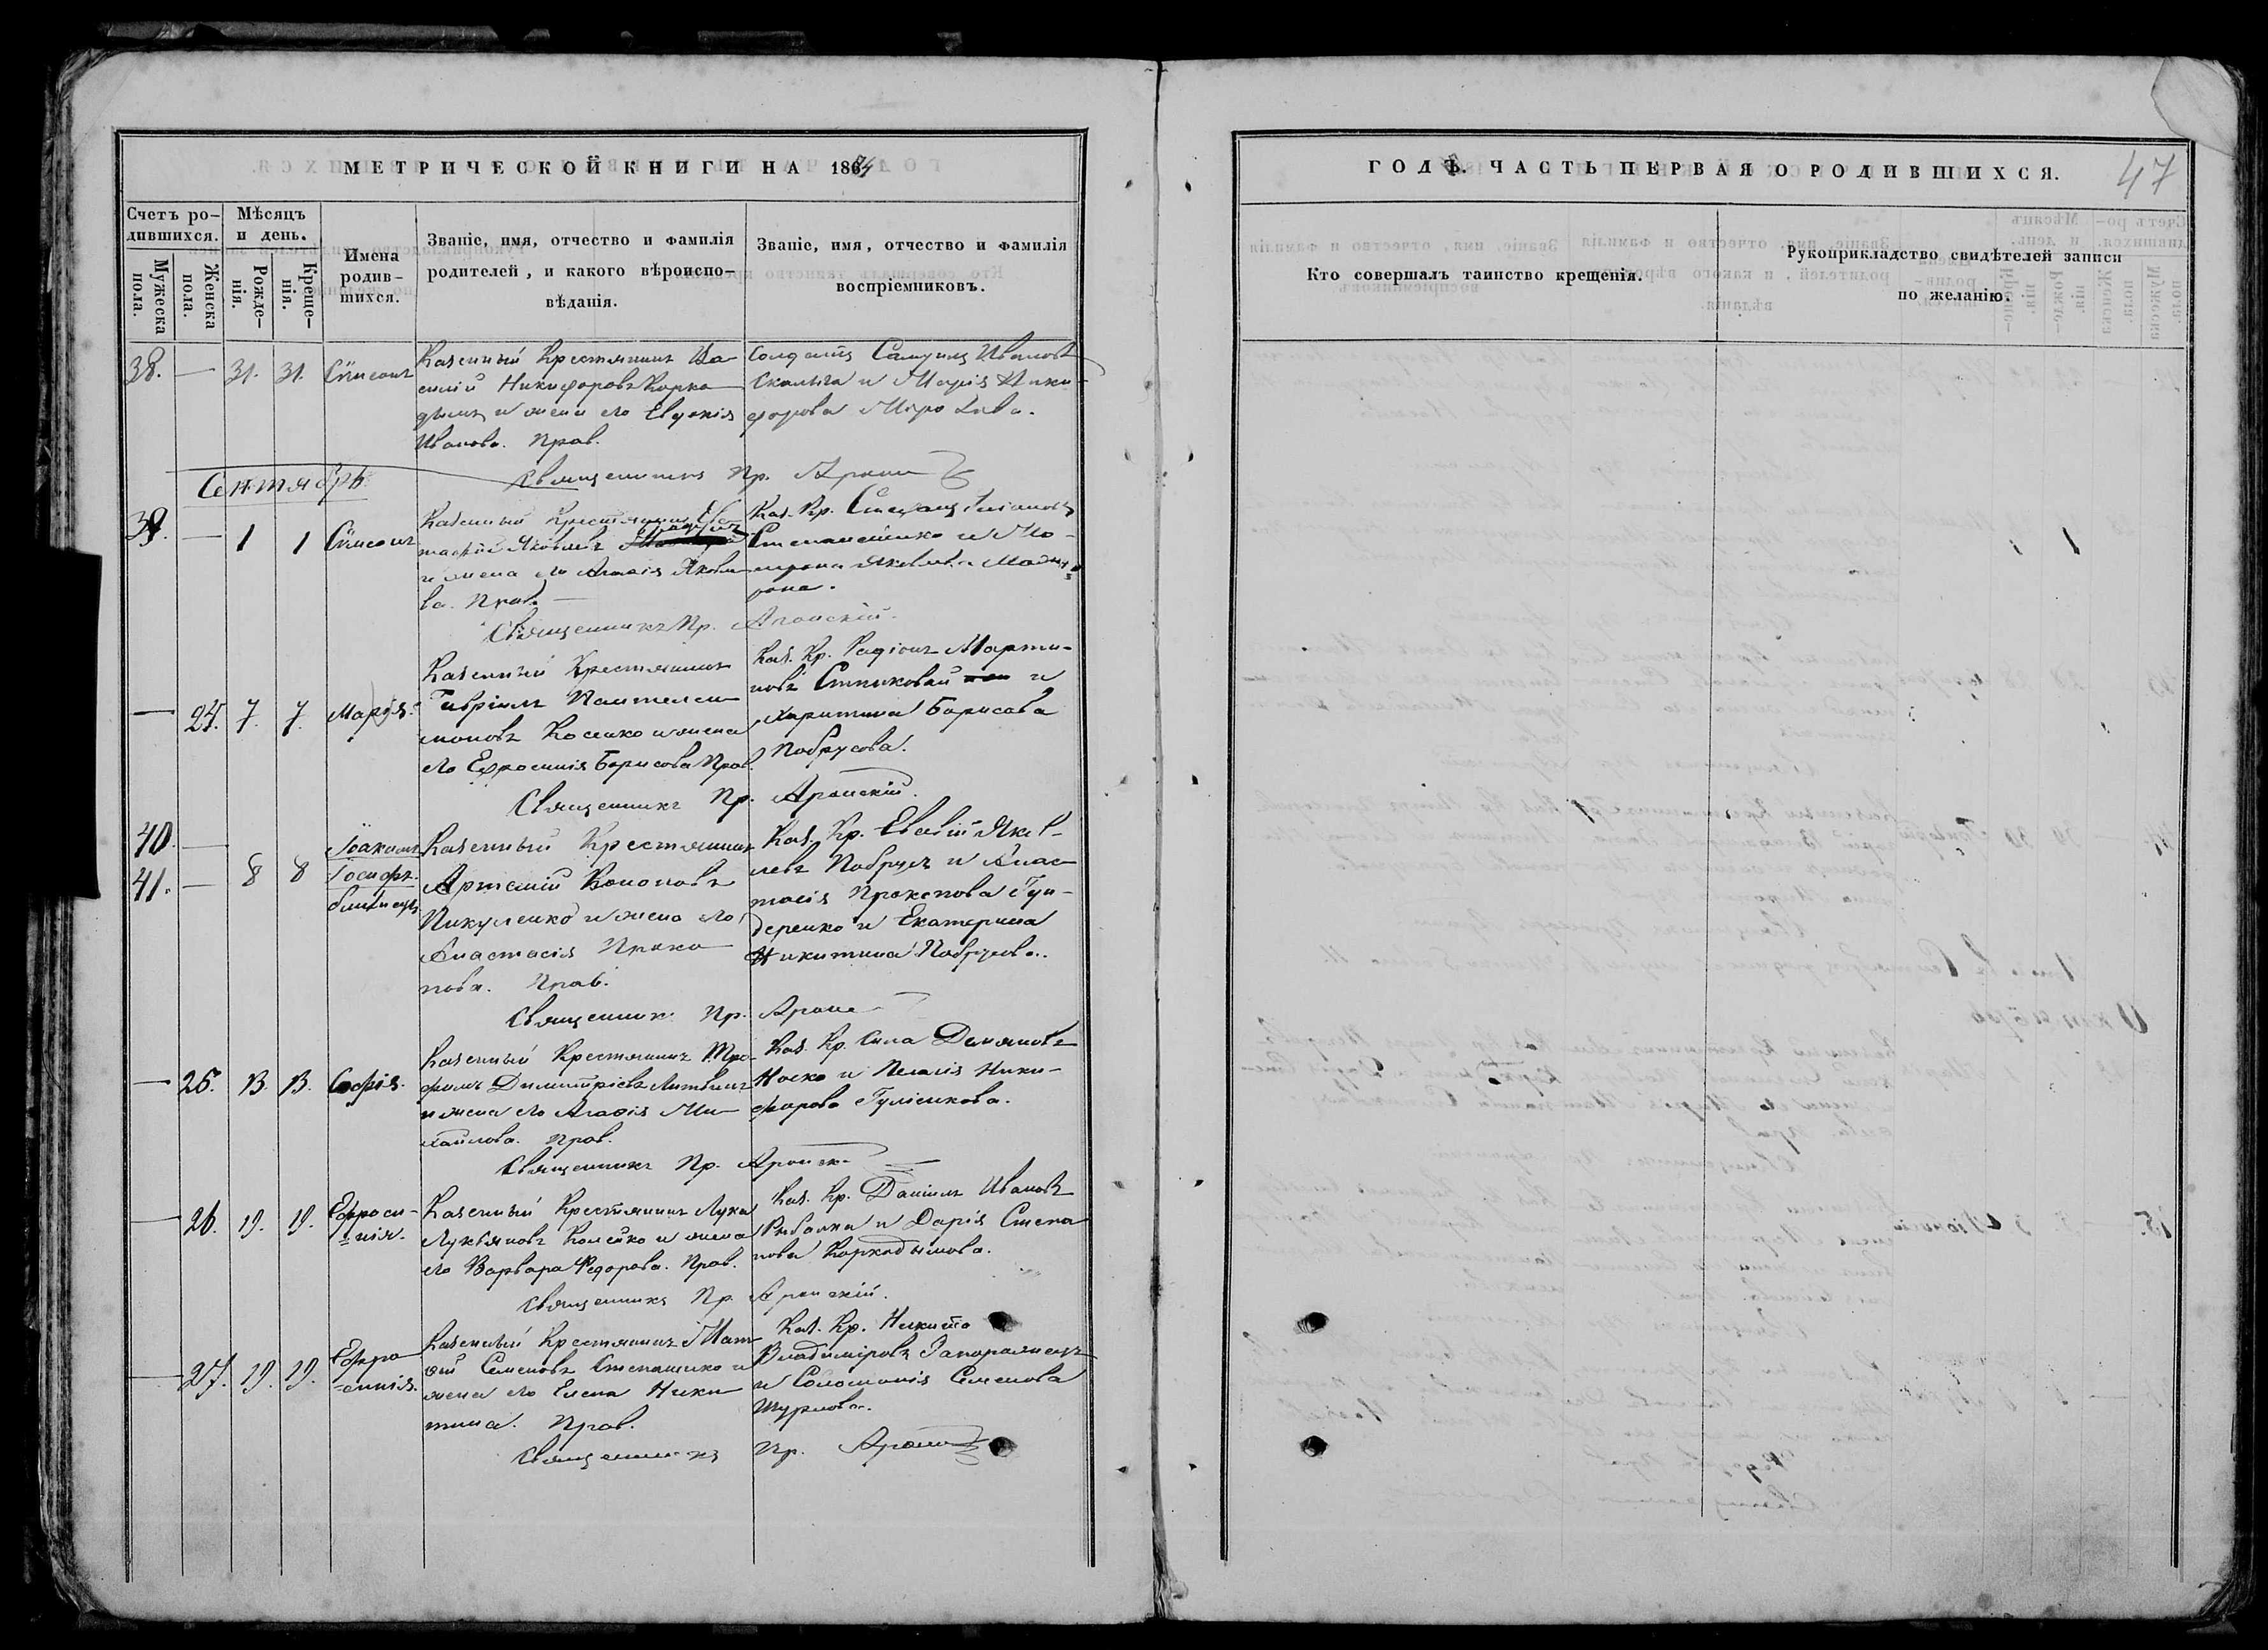 МЕТРИЧЕСКОЙ КНИГИ НА 1864
ГОДЪ. ЧАСТЬ ПЕРВАЯ О РОДИВШИХСЯ.
47
Счетъ ро-
дившихся.
Мужеска
пола.
Женска
пола.
Мѣсяцъ
и день.
Рожде-
нія.
Креще-
нія.
Имена
родив-
шихся.
Званіе, имя, отчество и фамилія
родителей, и какого вѣроиспо-
вѣданія.
Званіе, имя, отчество и фамилія
воспріемниковъ.
Кто совершалъ таинство крещенія.
Рукоприкладство свидѣтелей записи
по желанію.
38. — 31. 31. Сѵмеонъ
Казенный Крестянинъ Ва-
силій Никифоровъ Корка-
дымъ и жена его Евдокія
Иванова. Прав.
Солдатъ Самуилъ Ивановъ
и Марія Ники-
форова
Священникъ Пр.
Сентябрь
39. — 1 1 Сѵмеонъ
Казенный Крестянинъ Ев-
стафій Яковлевъ
и жена его Агафія Яковле-
ва. Прав.
Каз. Кр. Стефанъ
Степаненко и Ма-
трона Яковлева
Священникъ Пр. Аронскій.
— 24. 7. 7. Марѳа.
Казенный Крестянинъ
Гавріилъ Пантелеи-
моновъ Косенко и жена
его Ефросинія Борисова Прав.
Каз. Кр. Радіонъ Марти-
новъ и
Харитина Борисова
Побрусова.
Священникъ Пр. Аронскій.
40. —
41. — 8 8
Іоакимъ
Іосифъ
близнецы
Казенный Крестянинъ
Артемій Кононовъ
Пикуленко и жена его
Анастасія Проко-
пова. Прав.
Каз. Кр. Евсѣій Яков-
левъ Побрусъ и Анас-
тасія Прокопова Гун-
деренко и Екатерина
Никитина Побрусова.
Священникъ Пр.
— 25. 13. 13. Софія.
Казенный Крестянинъ Тро-
фимъ Димитріевъ Литвинъ
и жена его Агафія Ми-
хайлова. Прав.
Каз. Кр. Сила Демяновъ
Носко и Пелагія Ники-
форова Гуліенкова.
Священникъ Пр. Аронск.
— 26. 19. 19. Ефроси-
нія.
Казенный Крестянинъ Лука
Лукьяновъ Копейко и жена
его Варвара Федорова. Прав.
Каз. Кр. Даніилъ Ивановъ
Рыбалка и Дарія Степа-
нова Коркадымова.
Священникъ Пр. Аронскій.
— 27. 19. 19. Ефро-
синія.
Казенный Крестянинъ Мат-
ѳій Семеновъ Степаненко и
жена его Елена Ники-
тина. Прав.
Каз. Кр. Никита
Владиміровъ Запорожецъ
и Соломонія Семенова
Шурпова.
Священникъ Пр.